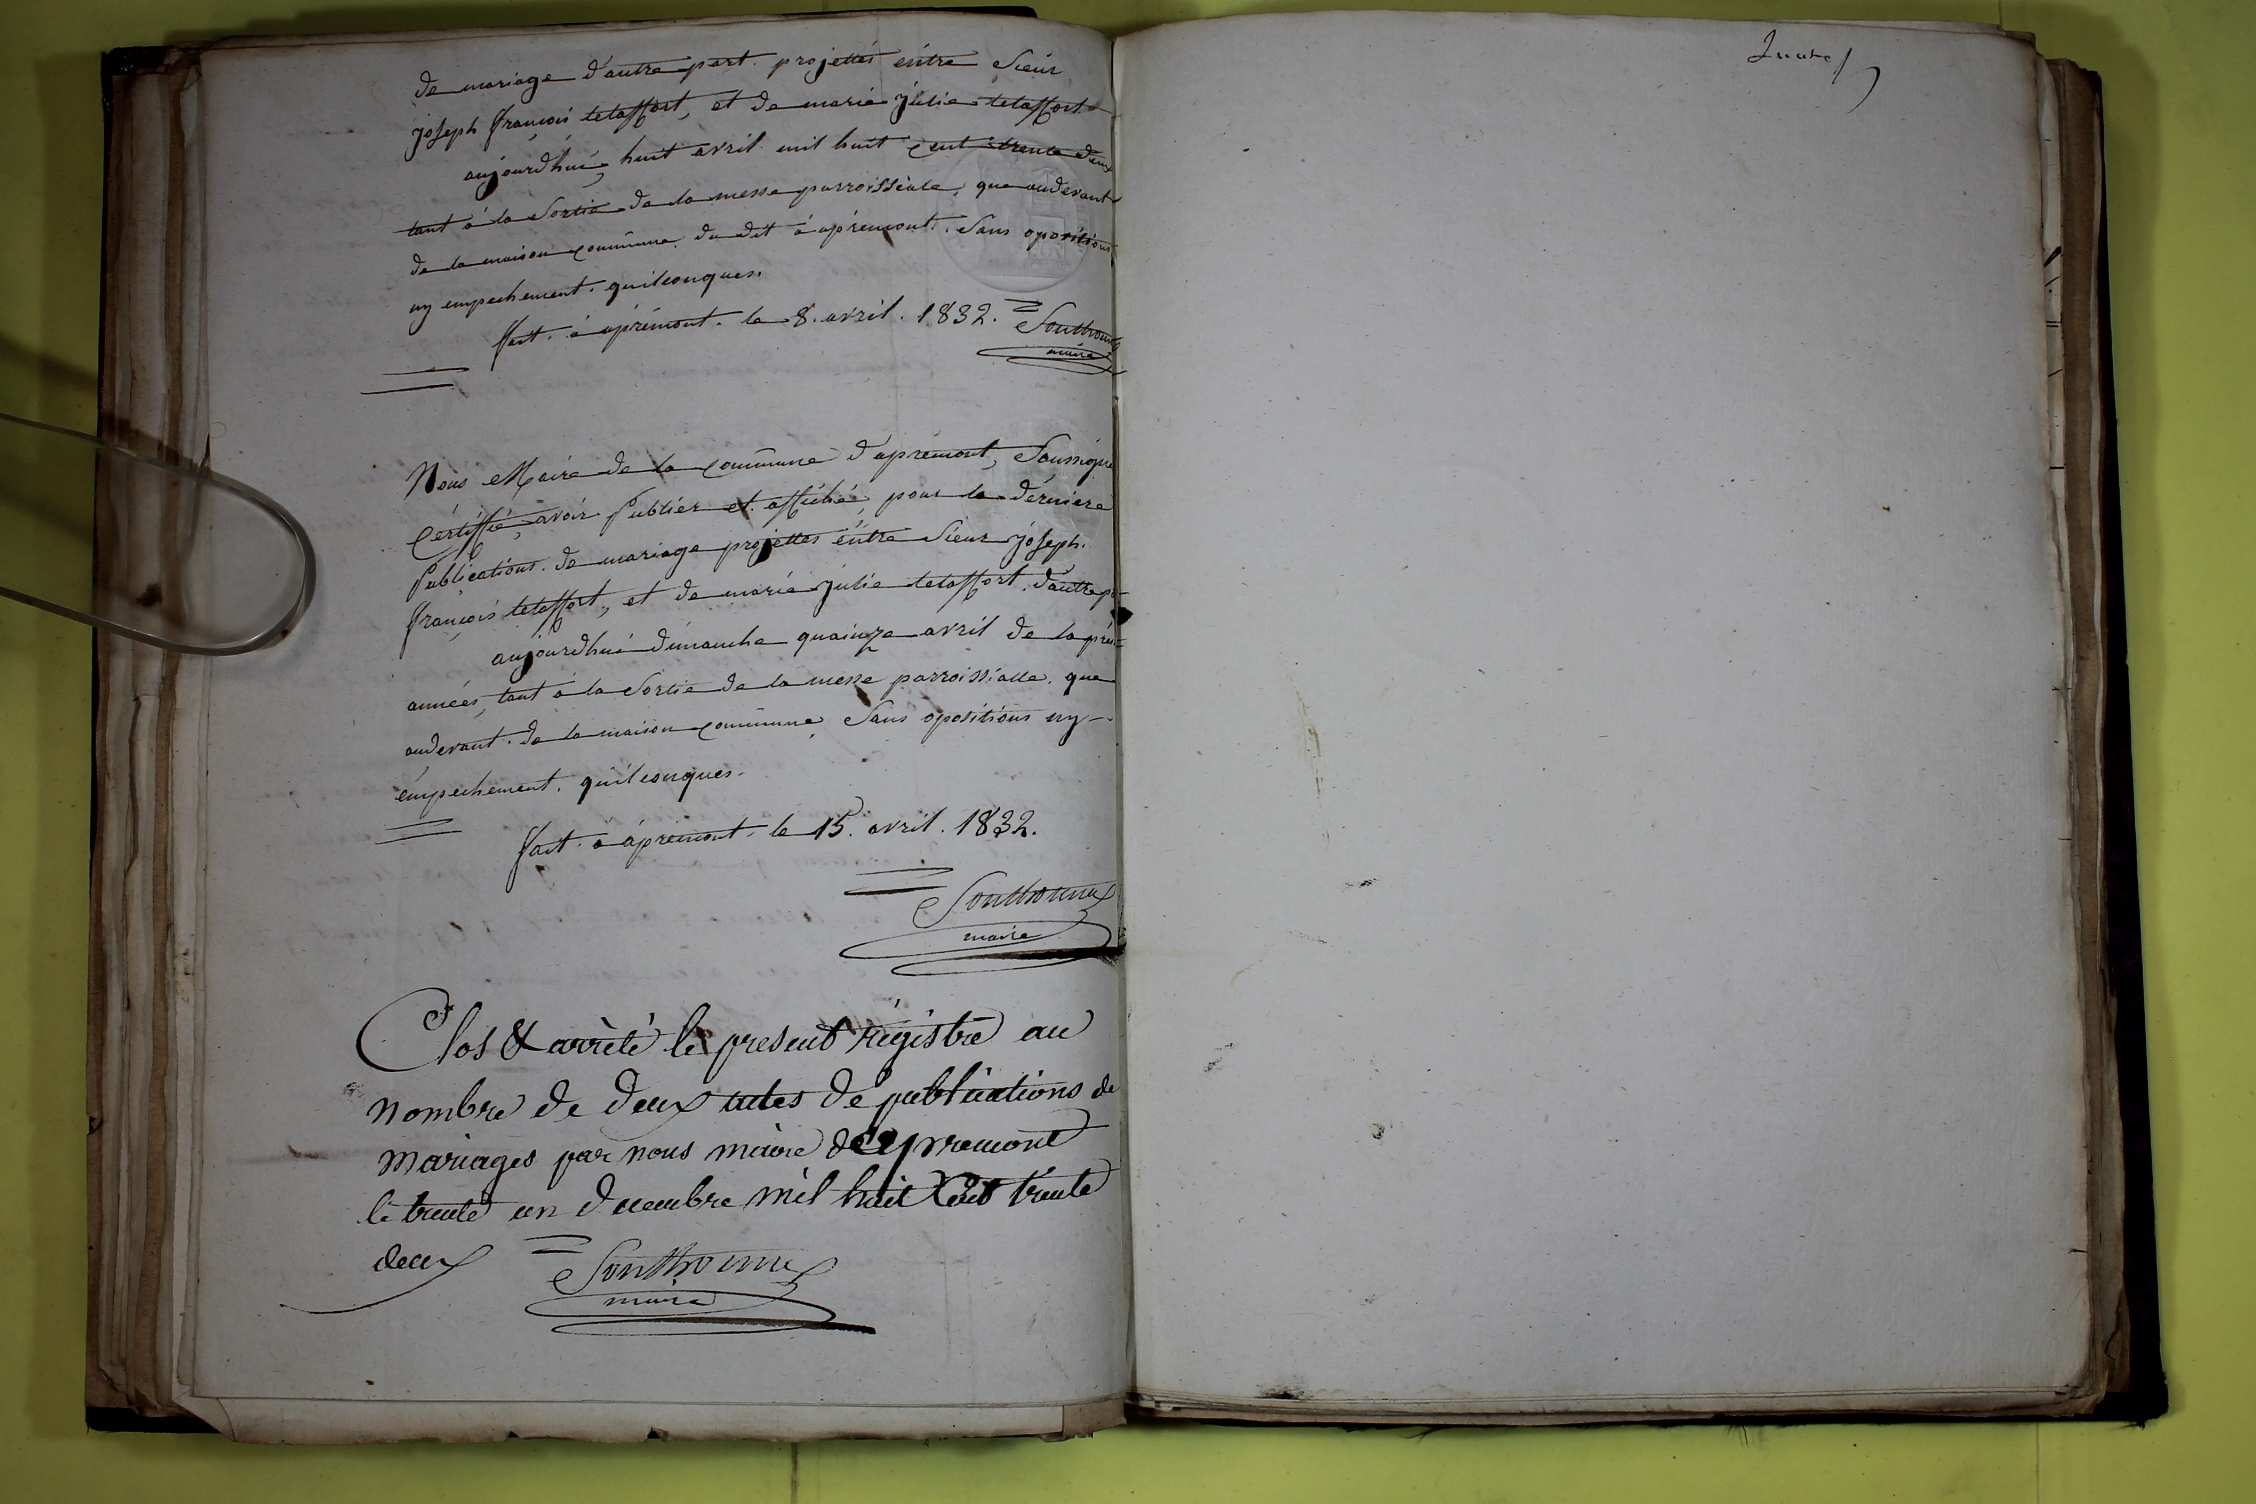 de mariage d'autre part. projettés éntre Sieur
joseph françois letaffort, et de marie julie letaffort
aujourdhui, huit avril mil huit cent trente deux
tant à la Sortie de la messe parroissiale, que audevant
de la maison commune du dit à aprémont. Sans opositions
ny empechement. quilconques.
fait. à aprémont. le 8. avril. 1832.
maire
Nous Maire de la commune d'aprémont, Soussigné
Cértiffie, avoir Publier et affiché, pour la dérniere
Publications. de mariage projettés éntre Sieur joseph.
françois letaffort, et de marie julie letaffort. d'autre
aujourdhui dimanche quainze avril de la
années, tant à la Sortie de la messe parroissialle. que
audevant. de la maison commune, Sans opositions ny
émpechement. quilconques.
fait. à aprémont. le 15. avril. 1832.
maire
Clos & arrèté le present régistre au
nombre de deux actes de publications de
mariages par nous maire d'Apremont
le trente un decembre mil huit Cent trente
deux
maire